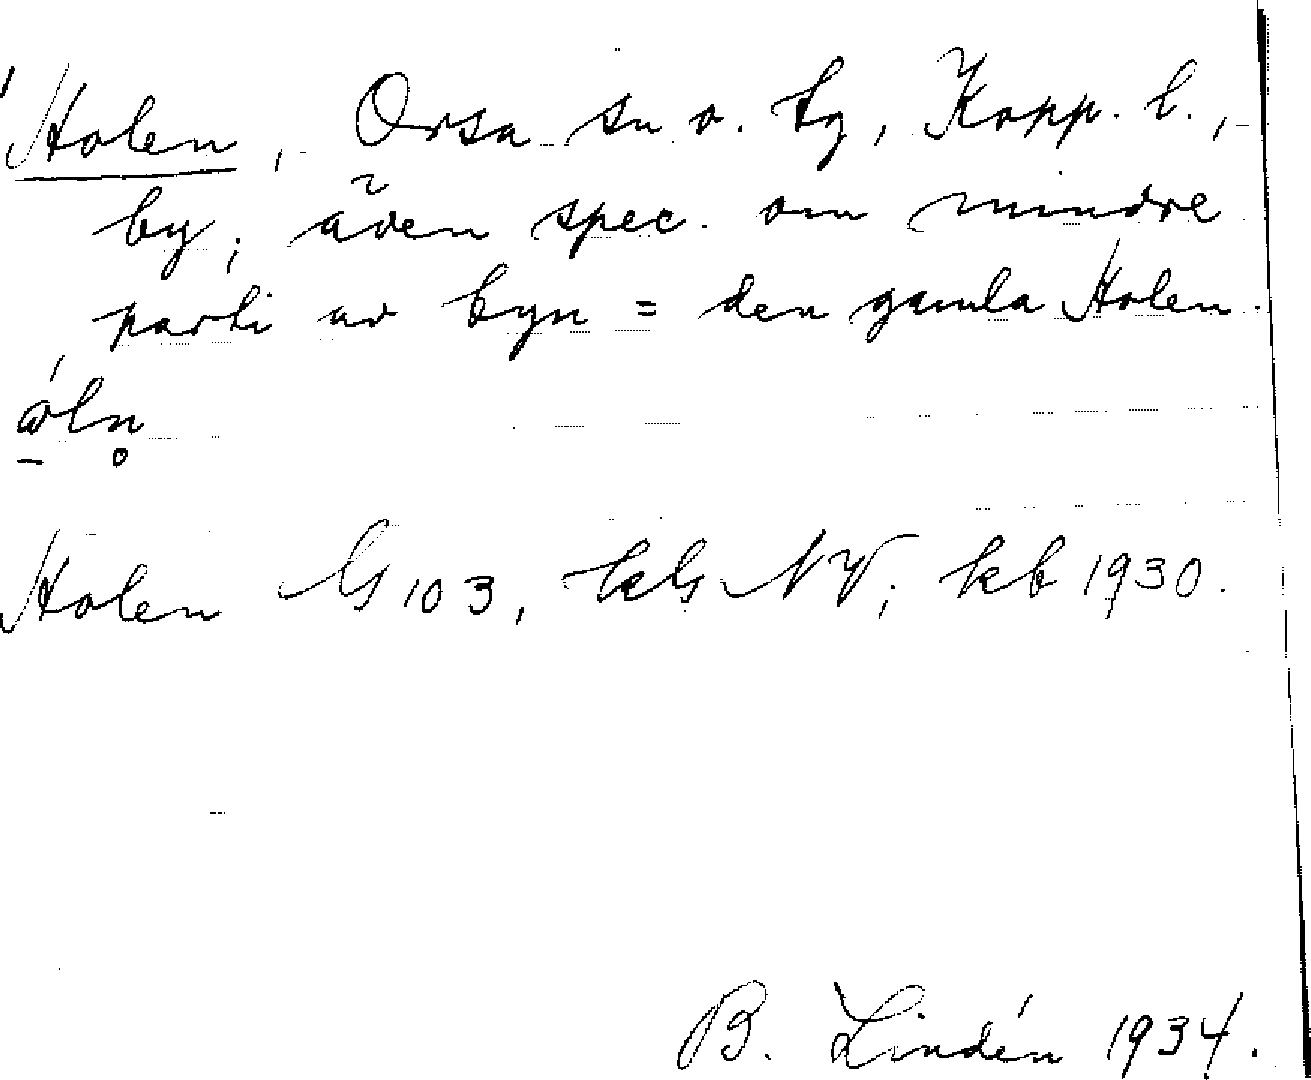 Holen, Orsa sn o. tg, Kopp. l.,
by; även spec. om mindre
parti av byn = den gamla Holen.
Holen G 103, kbG NV; kb 1930.
B. Lindén 1934.